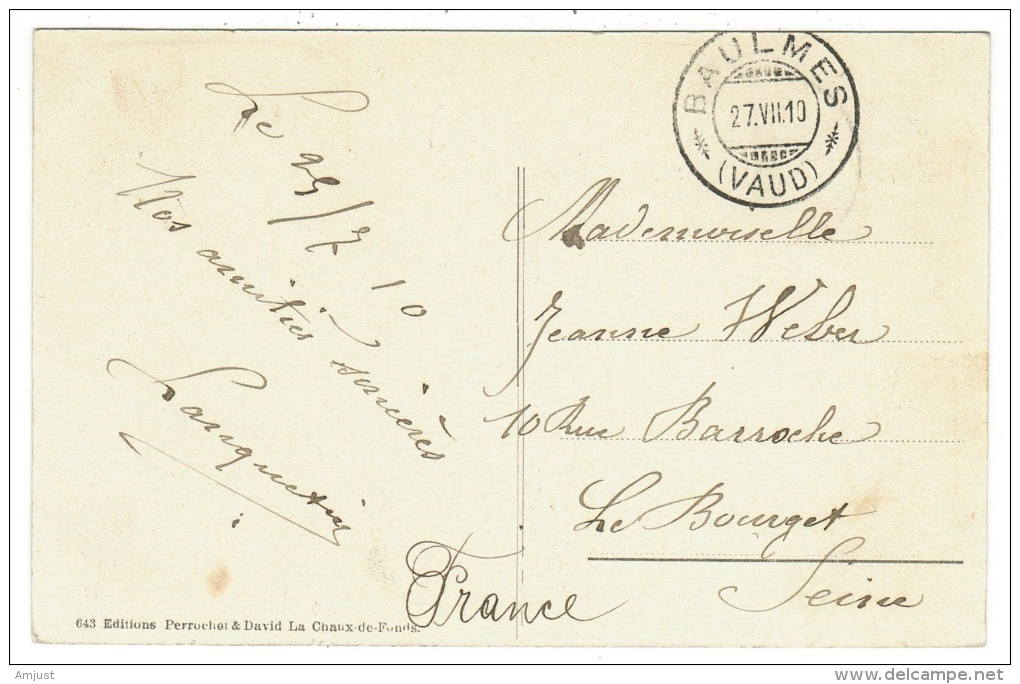 BAULMES
27.VII.10
(VAUD)
Le 25/7 10
Nos amitiés sincères
Languetin
Mademoiselle
Jeanne Weber
10 Rue Barroche
Le Bourget
Seine
France
643 Editions Perrochet & David La Chaux-de-Fonds.
Amjust
delcampe.net